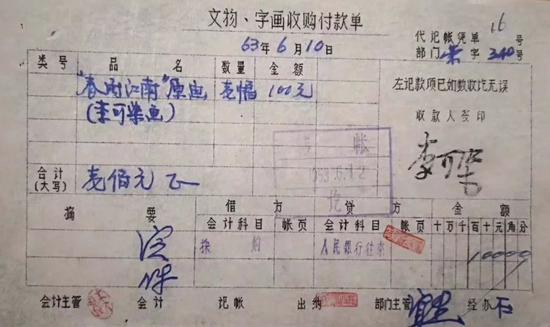 文物、字画收购付款单
代记帐凭单 16 号
63年6月10日
部门 荣 字 340 号
类号 品名 数量 金额
"春雨江南"原画 壹幅 100元
(李可染画)
左记款项已如数收讫无误
收款人签印
李可染
合计(大写) 壹佰元正
摘要 借方 贷方 金额
会计科目 帐页 会计科目 帐页 十万千百十元角分
采购 人民银行往来 10000
会计主管 会计 记帐 出纳 部门主管 经办